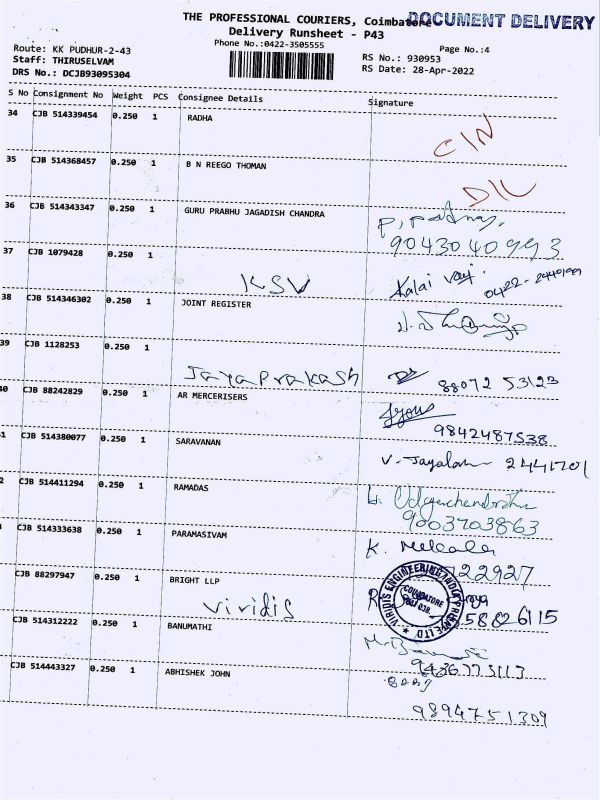 THE PROFESSIONAL COURIERS, Coimbatore
DOCUMENT DELIVERY
Delivery Runsheet - P43
Phone No.:0422-3505555
Page No.:4
Route: KK PUDHUR-2-43
RS No.: 930953
Staff: THIRUSELVAM
RS Date: 28-Apr-2022
DRS No.: DCJB93095304
S No Consignment No Weight PCS Consignee Details Signature
34 CJB 514339454 0.250 1 RADHA CIN
35 CJB 514368457 0.250 1 B N REEGO THOMAN D/L
36 CJB 514343347 0.250 1 GURU PRABHU JAGADISH CHANDRA
9043040993
37 CJB 1079428 0.250 1 KSV Kalai
38 CJB 514346302 0.250 1 JOINT REGISTER
39 CJB 1128253 0.250 1
Jaya Prakash 88072 53123
40 CJB 88242829 0.250 1 AR MERCERISERS
9842487538
41 CJB 514380077 0.250 1 SARAVANAN V. Jayalaxmi 2441701
2 CJB 514411294 0.250 1 RAMADAS
9003703863
CJB 514333638 0.250 1 PARAMASIVAM K. Mekala
22927
CJB 88297947 0.250 1 BRIGHT LLP
Viridis 58826115
VIRIDIS ENGINEERING INDIA PRIVATE LTD
COIMBATORE
CJB 514312222 0.250 1 BANUMATHI
CJB 514443327 0.250 1 ABHISHEK JOHN
9894751309